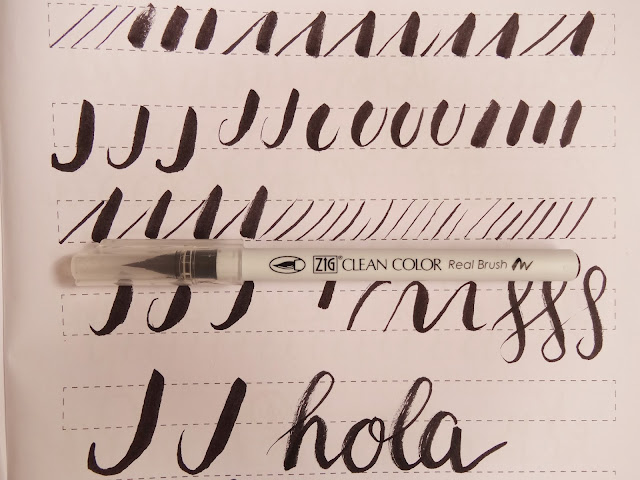 ZIG CLEAN COLOR Real Brush
hola